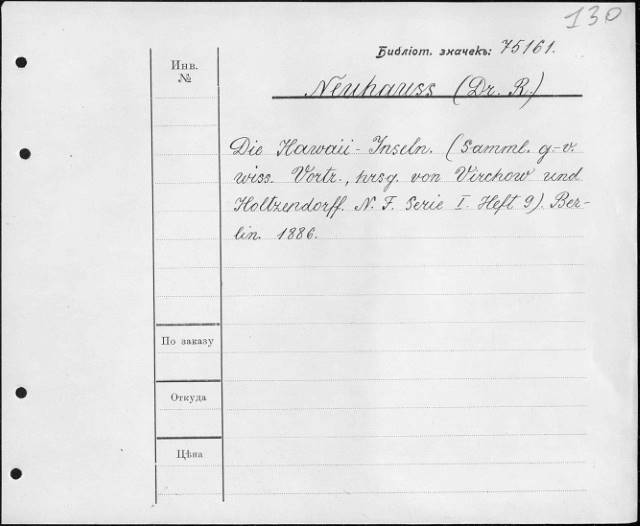 130
Библіот. значекъ: 75161.
Инв.
№
Neuhauss (Dr. R.)
Die Hawaii-Inseln. (Samml. g.-v.
wiss. Vortr., hrsg. von Virchow und
Holtzendorff. N. F. Serie I. Heft 9). Ber-
lin. 1886.
По заказу
Откуда
Цѣна